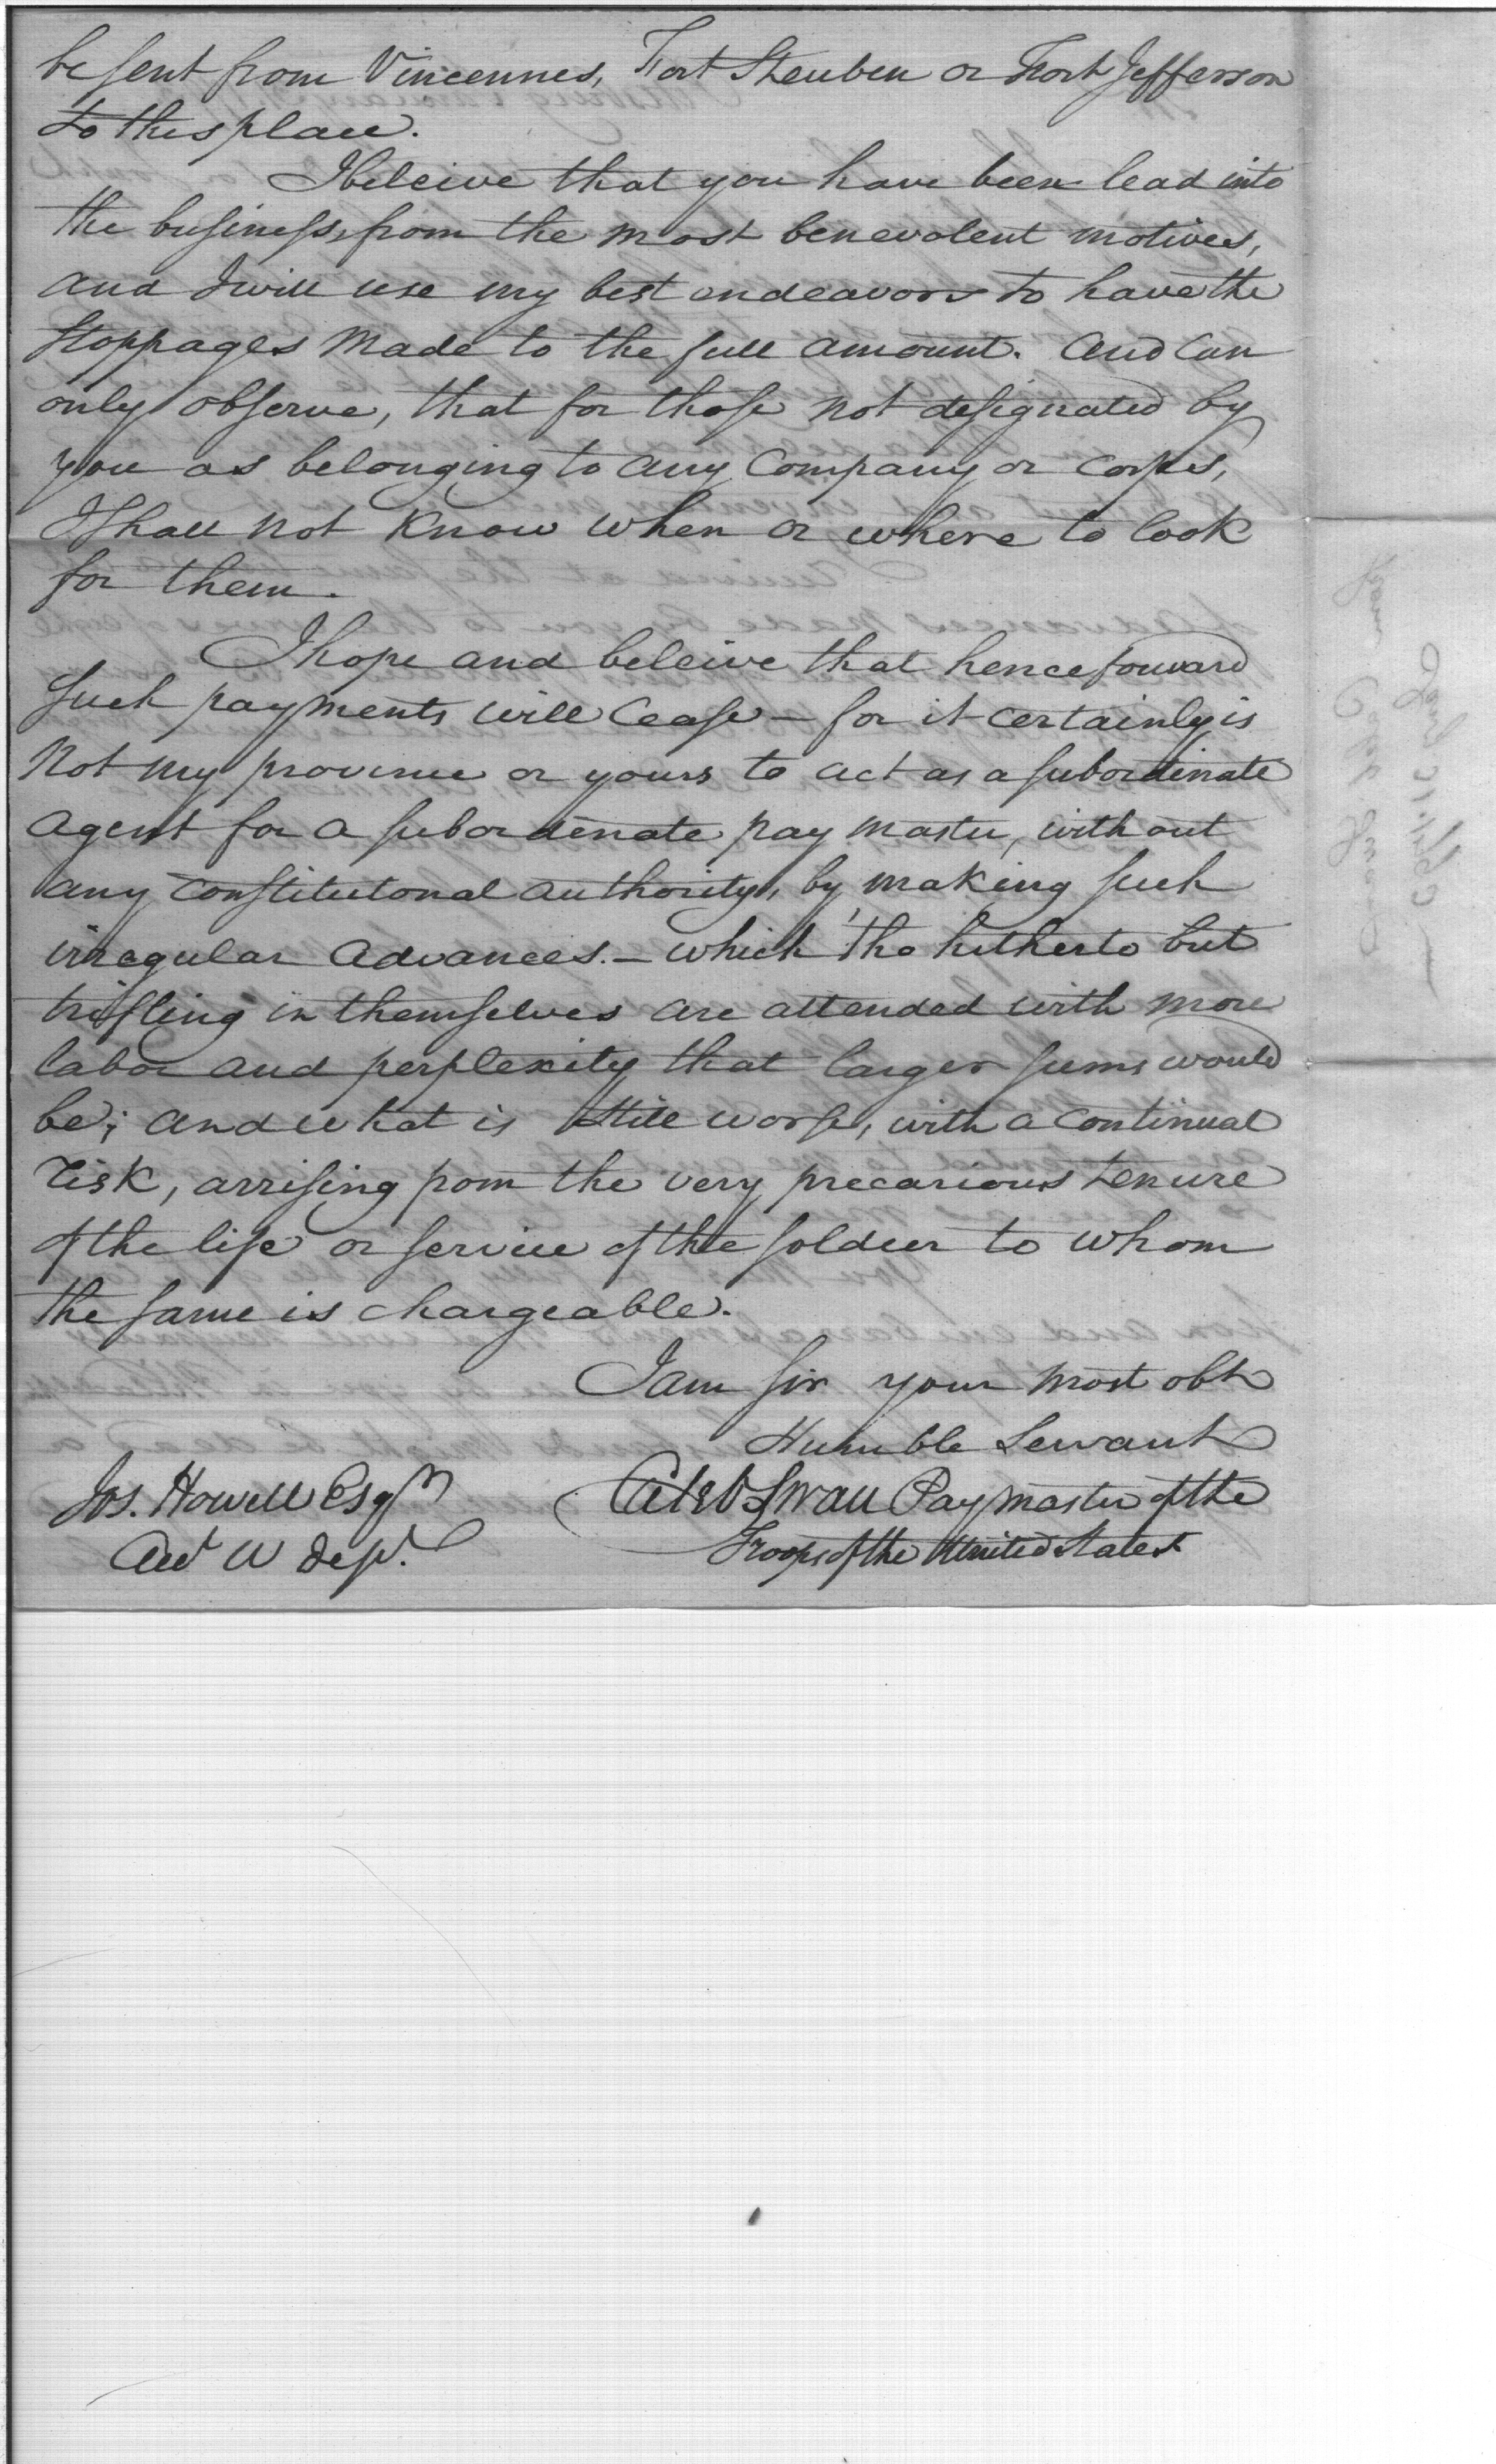 be sent from Vincennes, Fort Steuben or Fort Jefferson
to this place.
I beleive that you have been lead into
the business, from the most benevolent motives,
and I will use my best endeavors to have the
stoppages made to the full amount. And can
only observe, that for those not designated by
you as belonging to any Company or corps,
I shall not know when or where to look
for them.
I hope and beleive that henceforward
such payments will cease – for it certainly is
not my province or yours to act as a subordinate
agent for a subordenate pay master, without
any constitutonal authority, by making such
irregular advances. – which 'tho hitherto but
trifling in themselves are attended with more
labor and perplexity that larger sums would
be; and what is still worse, with a continual
risk, arrising from the very precarious tenure
of the life or service of the soldier to whom
the same is chargeable.
I am sir your most obt
Humble Servant
Caleb Swan Paymaster of the
Troops of the United States
Jos. Howell Esqr
Act W Dept.